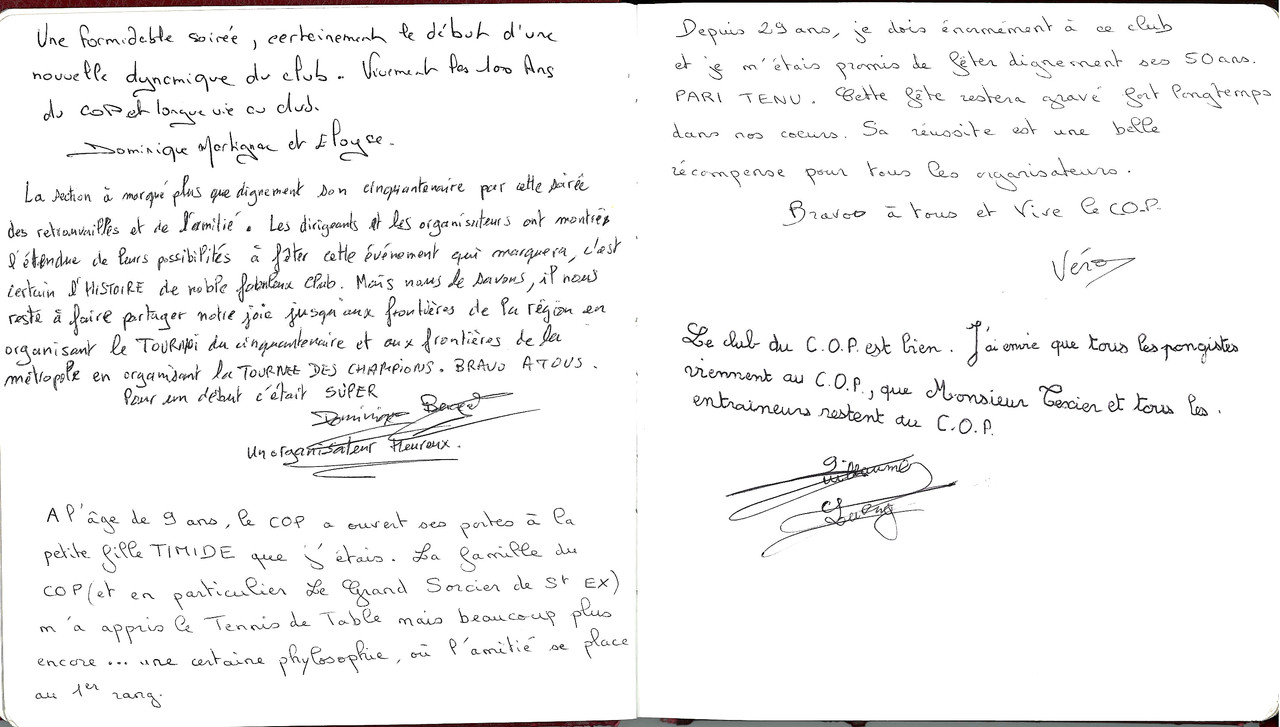 Une formidable soirée, certainement le début d'une
nouvelle dynamique du club. Vivement les 100 Ans
du COP et longue vie au club.
Dominique Martignac et Eloyse.
La section à marqué plus que dignement son cinquantenaire par cette soirée
des retrouvailles et de l'amitié. Les dirigeants et les organisateurs ont montrés
l'étendue de leurs possibilités à fêter cette événement qui marquera, c'est
certain l'HISTOIRE de noble fabuleux club. Mais nous le savons, il nous
reste à faire partager notre joie jusqu'aux frontières de la région en
organisant le TOURNOI du cinquantenaire et aux frontières de la
métropole en organisant la TOURNEE DES CHAMPIONS. BRAVO A TOUS.
Pour un début c'était SUPER
Dominique
Un organisateur Heureux.
A l'âge de 9 ans, le COP a ouvert ses portes à la
petite fille TIMIDE que j'étais. La famille du
COP (et en particulier Le Grand Sorcier de St EX)
m'a appris le Tennis de Table mais beaucoup plus
encore... une certaine phylosophie, où l'amitié se place
au 1er rang.
Depuis 29 ans, je dois énormément à ce club
et je m'étais promis de fêter dignement ses 50 ans.
PARI TENU. Cette fête restera gravé fort longtemps
dans nos coeurs. Sa réussite est une belle
récompense pour tous les organisateurs.
Bravoo à tous et Vive le C.O.P.
Véro
Le club du C.O.P. est bien. J'ai envie que tous les pongistes
viennent au C.O.P., que Monsieur Texier et tous les.
entraineurs restent au C.O.P.
Guillaume